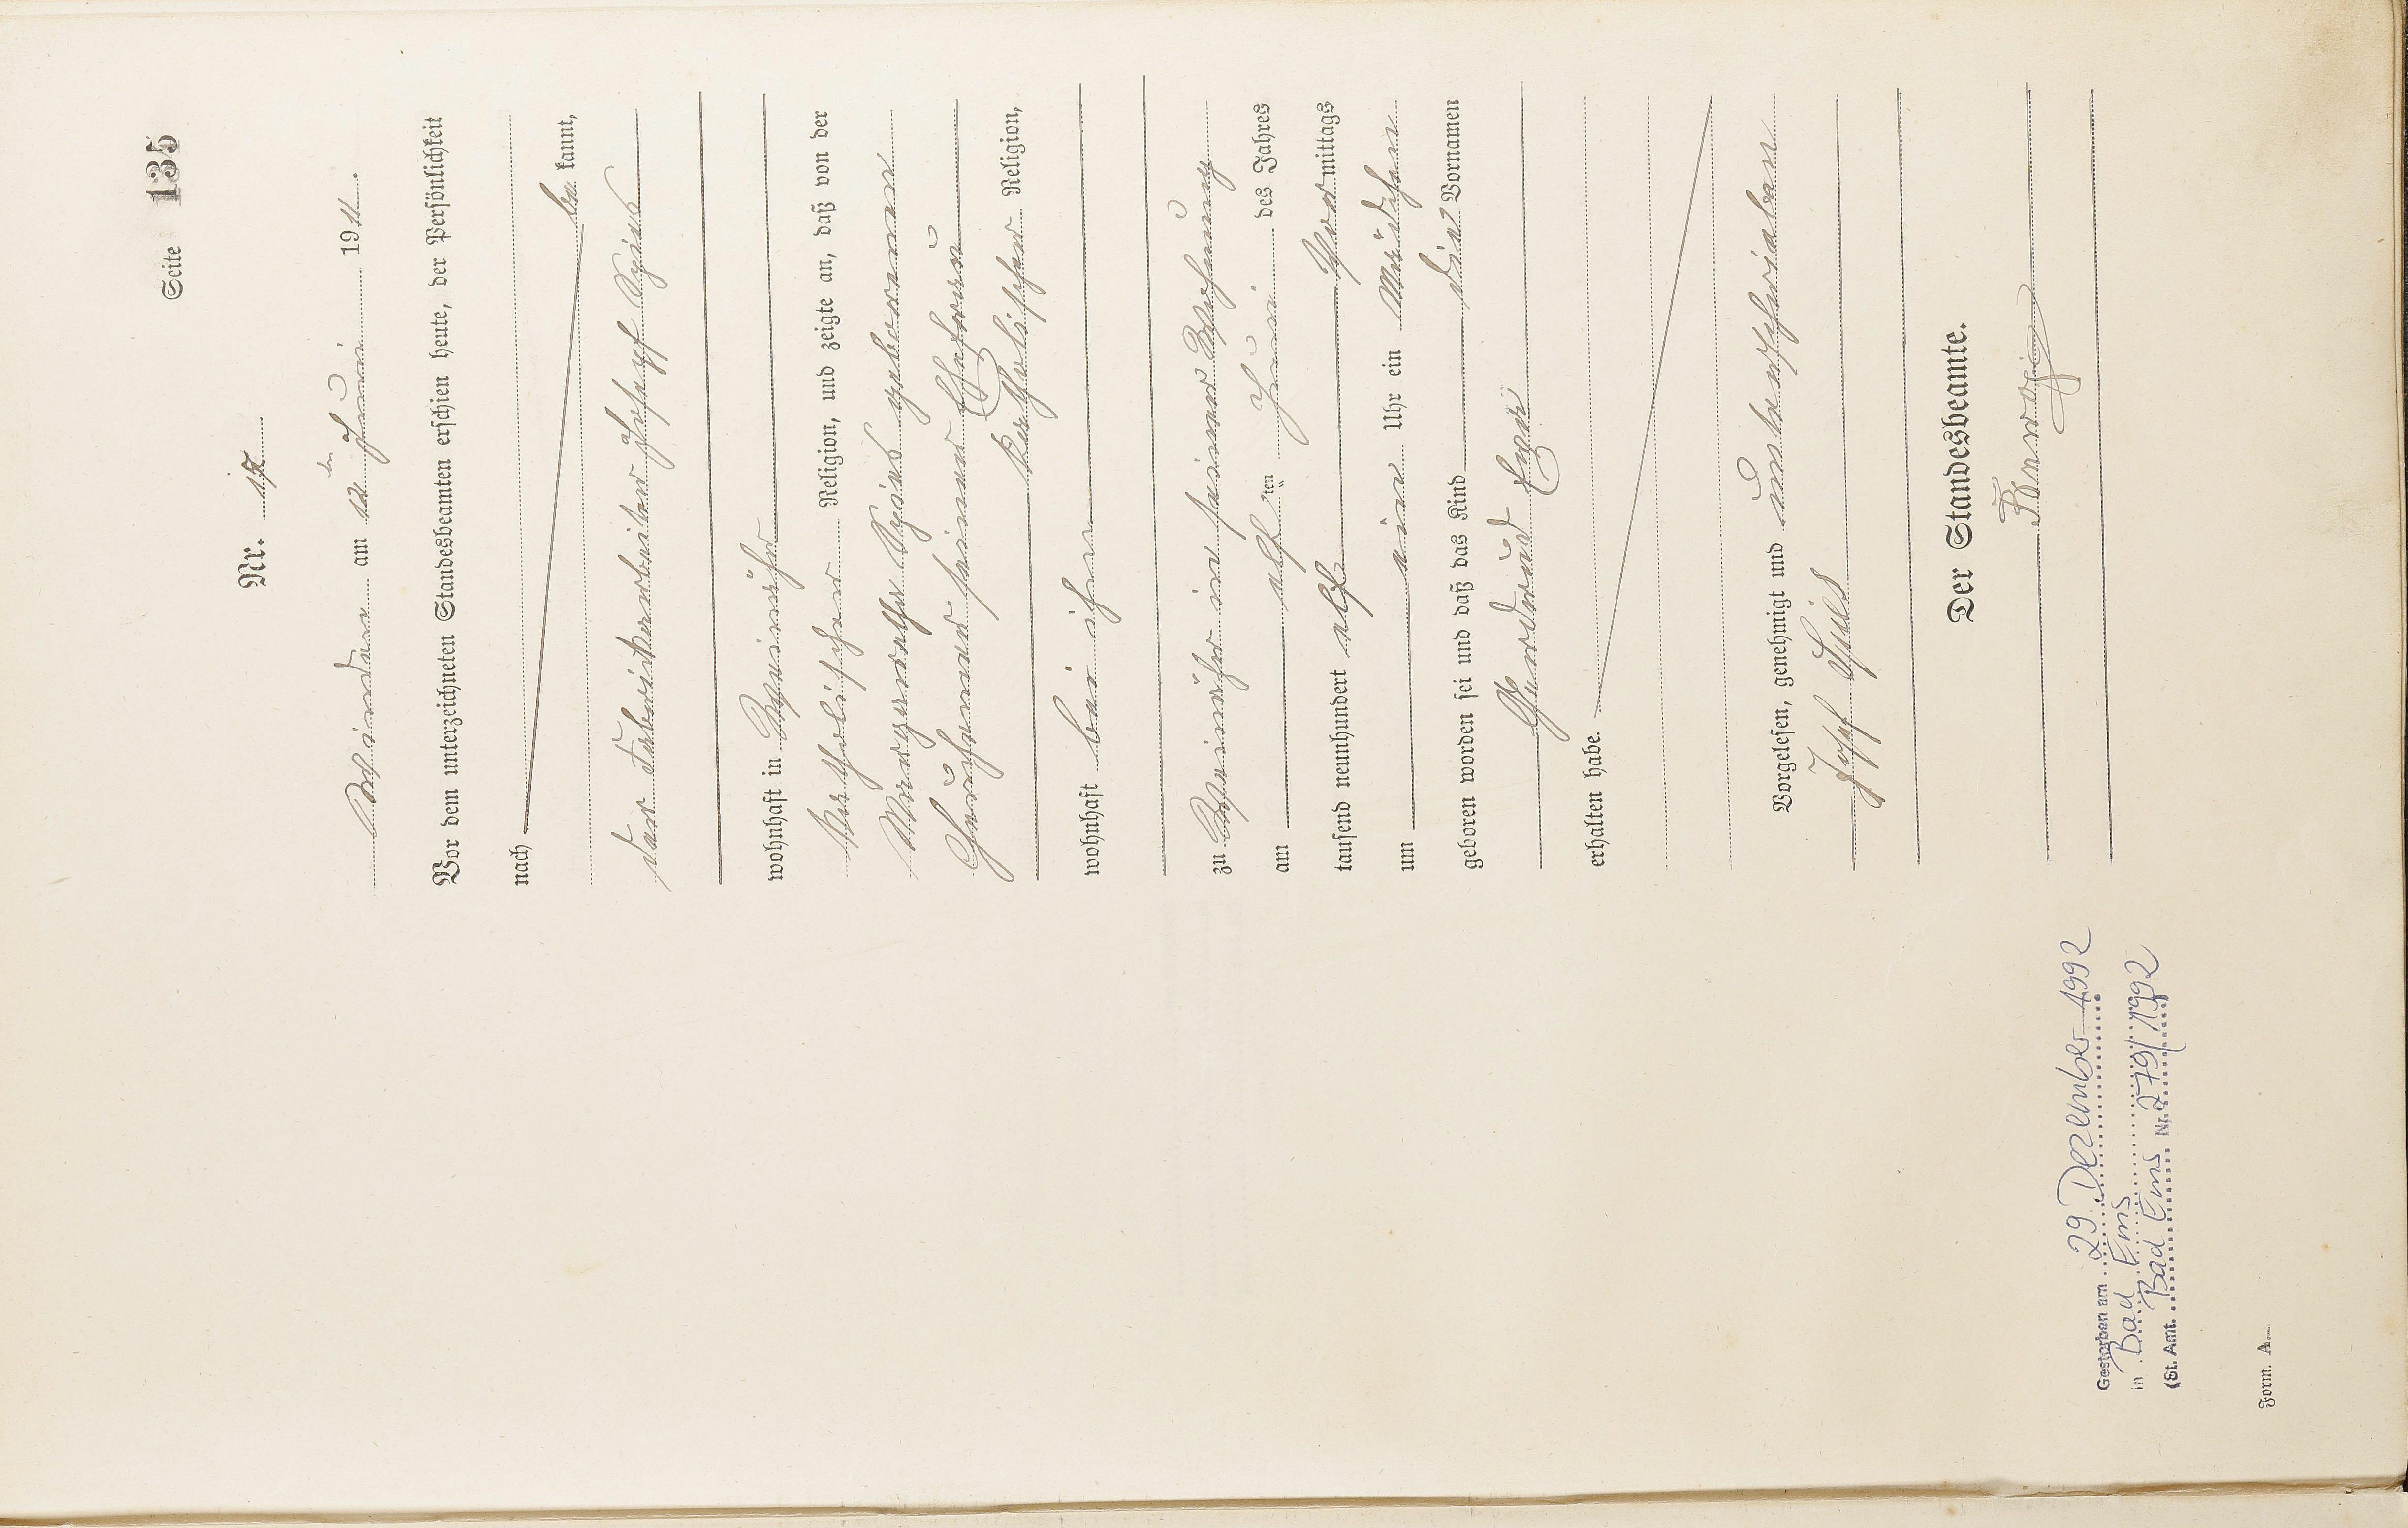 Seite 135
Nr. 17
Winden am 12 ten Juni 1911.
Vor dem unterzeichneten Standesbeamten erschien heute, der Persönlichkeit
nach
be kannt,
der Fabrikarbeiter Joseph Spies
wohnhaft in Weinähr
katholischer Religion, und zeigte an, daß von der
Margaretha Spies geborenen
seiner Ehefrau
katholischer Religion,
wohnhaft bei ihm
zu Weinähr in seiner Wohnung
am elf ten Juni des Jahres
tausend neunhundert elf Vormittags
um ein Uhr ein Mädchen
geboren worden sei und daß das Kind die Vornamen
Gertrud Eva
erhalten habe.
Vorgelesen, genehmigt und unterschrieben
Josef Spies
Der Standesbeamte.
Gestorben am 29 Dezember 1992
in Bad Ems
(St. Amt. Bad Ems Nr. 279/1992
Form. A